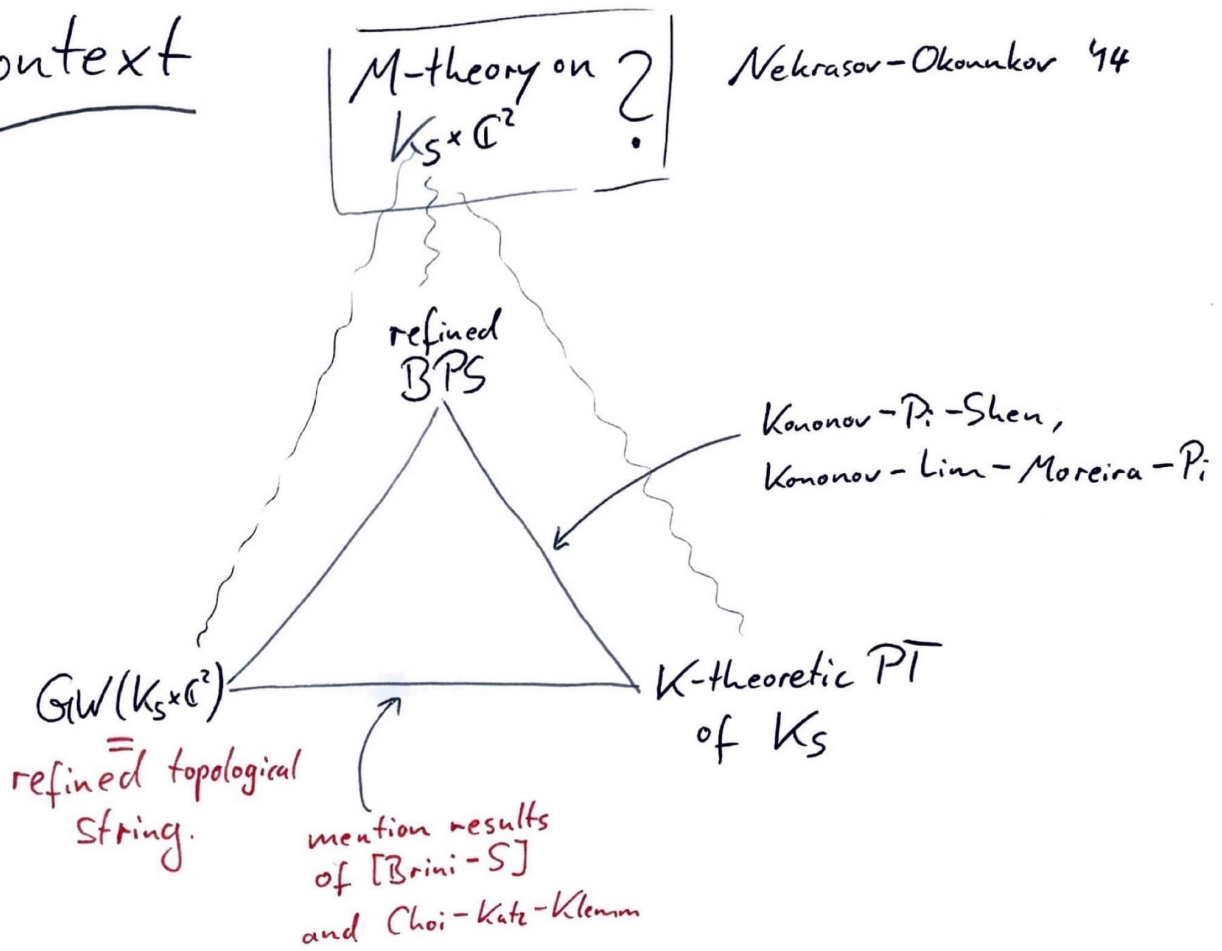 ontext
M-theory on ?
K_S × ℂ²
Nekrasov-Okounkov '14
refined
BPS
Kononov-Pi-Shen,
Kononov-Lim-Moreira-Pi
GW(K_S×ℂ²)
=
refined topological
string.
K-theoretic PT
of K_S
mention results
of [Brini-S]
and Choi-Katz-Klemm